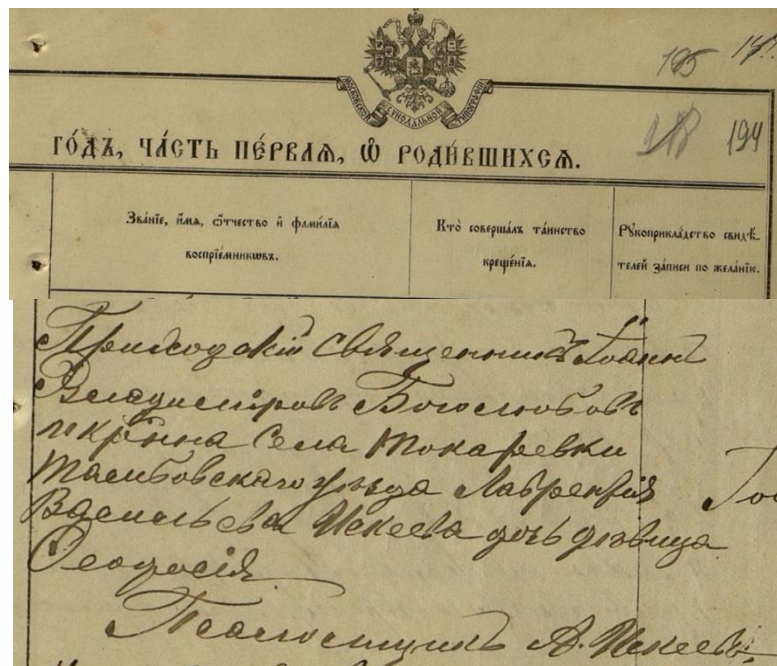 МОСКОВСКОЙ СѴНОДАЛЬНОЙ ТИПОГРАФІИ
195
194
ГО́ДЪ, ЧА́СТЬ ПЕ́РВАЯ, Ѽ РОДИ́ВШИХСЯ.
Зва́нїе, и҆́мя, ѻ҆́тчество и҆ фами́лїя
воспрїе́мникѡвъ.
Кто̀ соверша́лъ та́инство
креще́нїя.
Рꙋкоприкла́дство свидѣ́-
телей за́писи по жела́нїю.
Приходскій Священникъ Іоаннъ
Владиміровъ Богослюбовъ
и кр‑нина Села Токаревки
Тамбовскаго уѣзда Лаврентія
Васильева Искеева дочь дѣвица
Ѳеодосія
Псаломщикъ А. Искеевъ.